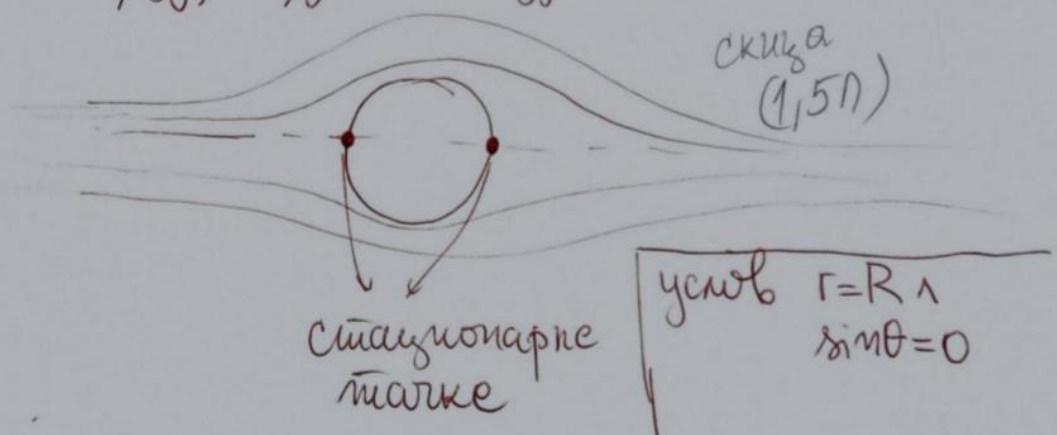 скица
(1,5п)
стационарне
тачке
услов r=R ∧
sinθ=0